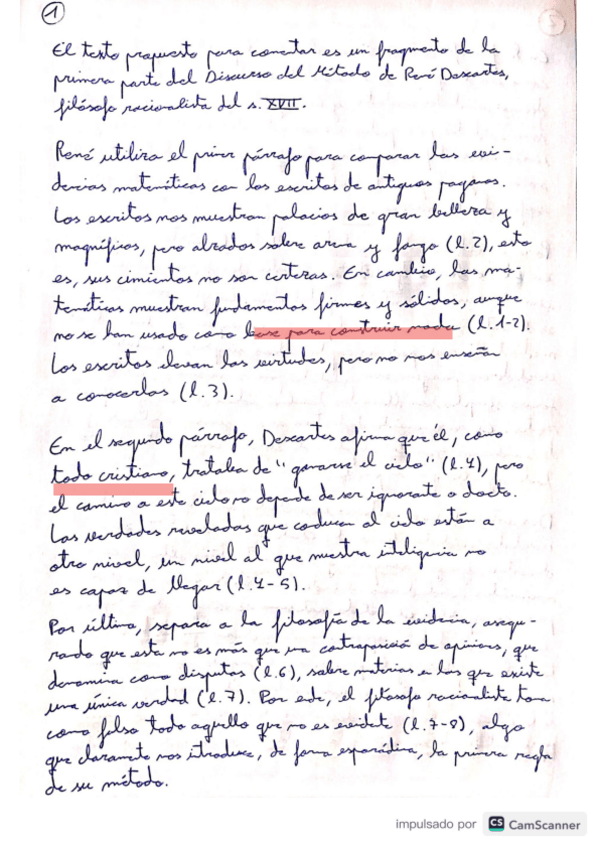 1
El texto propuesto para comentar es un fragmento de la
primera parte del Discurso del Método de René Descartes,
filósofo racionalista del s. XVII.
René utiliza el primer párrafo para comparar las evi-
dencias matemáticas con los escritos de antiguos paganos.
Los escritos nos muestran palacios de gran belleza y
magníficos, pero alzados sobre arena y fango (l.2), esto
es, sus cimientos no son certezas. En cambio, las ma-
temáticas muestran fundamentos firmes y sólidos, aunque
no se han usado como base para construir nada (l.1-2).
Los escritos elevan las virtudes, pero no nos enseñan
a conocerlas (l.3).
En el segundo párrafo, Descartes afirma que él, como
todo cristiano, trataba de "ganarse el cielo" (l.4), pero
el camino a este cielo no depende de ser ignorante o docto.
Las verdades reveladas que conducen al cielo están a
otro nivel, un nivel al que nuestra inteligencia no
es capaz de llegar (l.4-5).
Por último, separa a la filosofía de la evidencia, asegu-
rando que esta no es más que una contraposición de opiniones, que
denomina como disputas (l.6), sobre materias en las que existe
una única verdad (l.7). Por ende, el filósofo racionalista toma
como falso todo aquello que no es evidente (l.7-8), algo
que claramente nos introduce, de forma esporádica, la primera regla
de su método.
impulsado por CS CamScanner